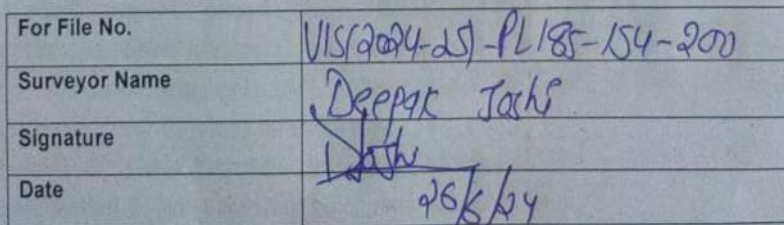 For File No. VIS(2024-25)-PL185-154-200
Surveyor Name Deepak Joshi
Signature Joshi
Date 26/6/24